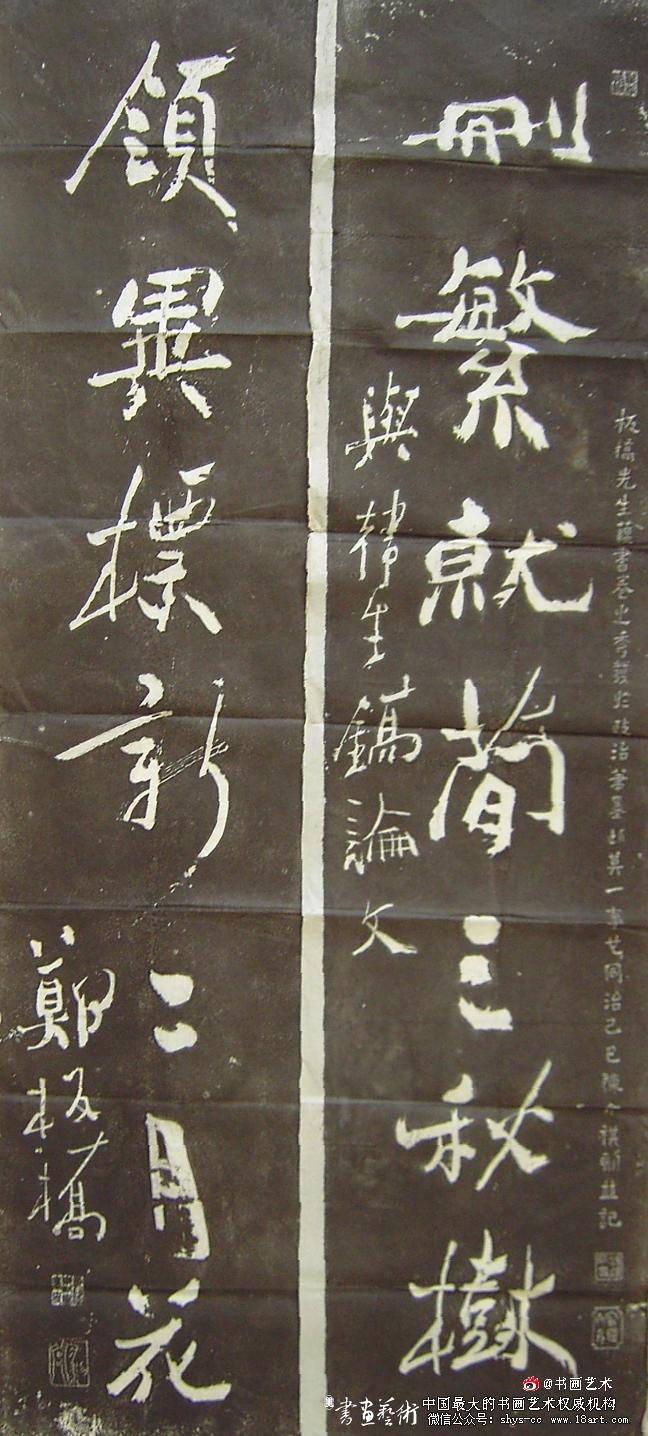 板橋先生蘊書卷之秀發於政治筆墨其一事也同治己巳陳介祺並記
刪繁就簡三秋樹
與韓生鎬論文
領異標新二月花
鄭板橋
@书画艺术
書畫藝術 中国最大的书画艺术权威机构
微信公众号：shys-cc www.18art.com